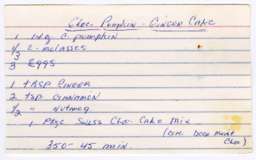 Choc. Pumpkin - Ginger Cake
1 14 oz. C. pumpkin
1/3 C. molasses
3 Eggs
1 tasp Ginger
2 tsp Cinnamon
1/2 " Nutmeg
1 Pkge Swiss Choc. Cake Mix
(D.H. Deep Moist Choc)
350 - 45 min